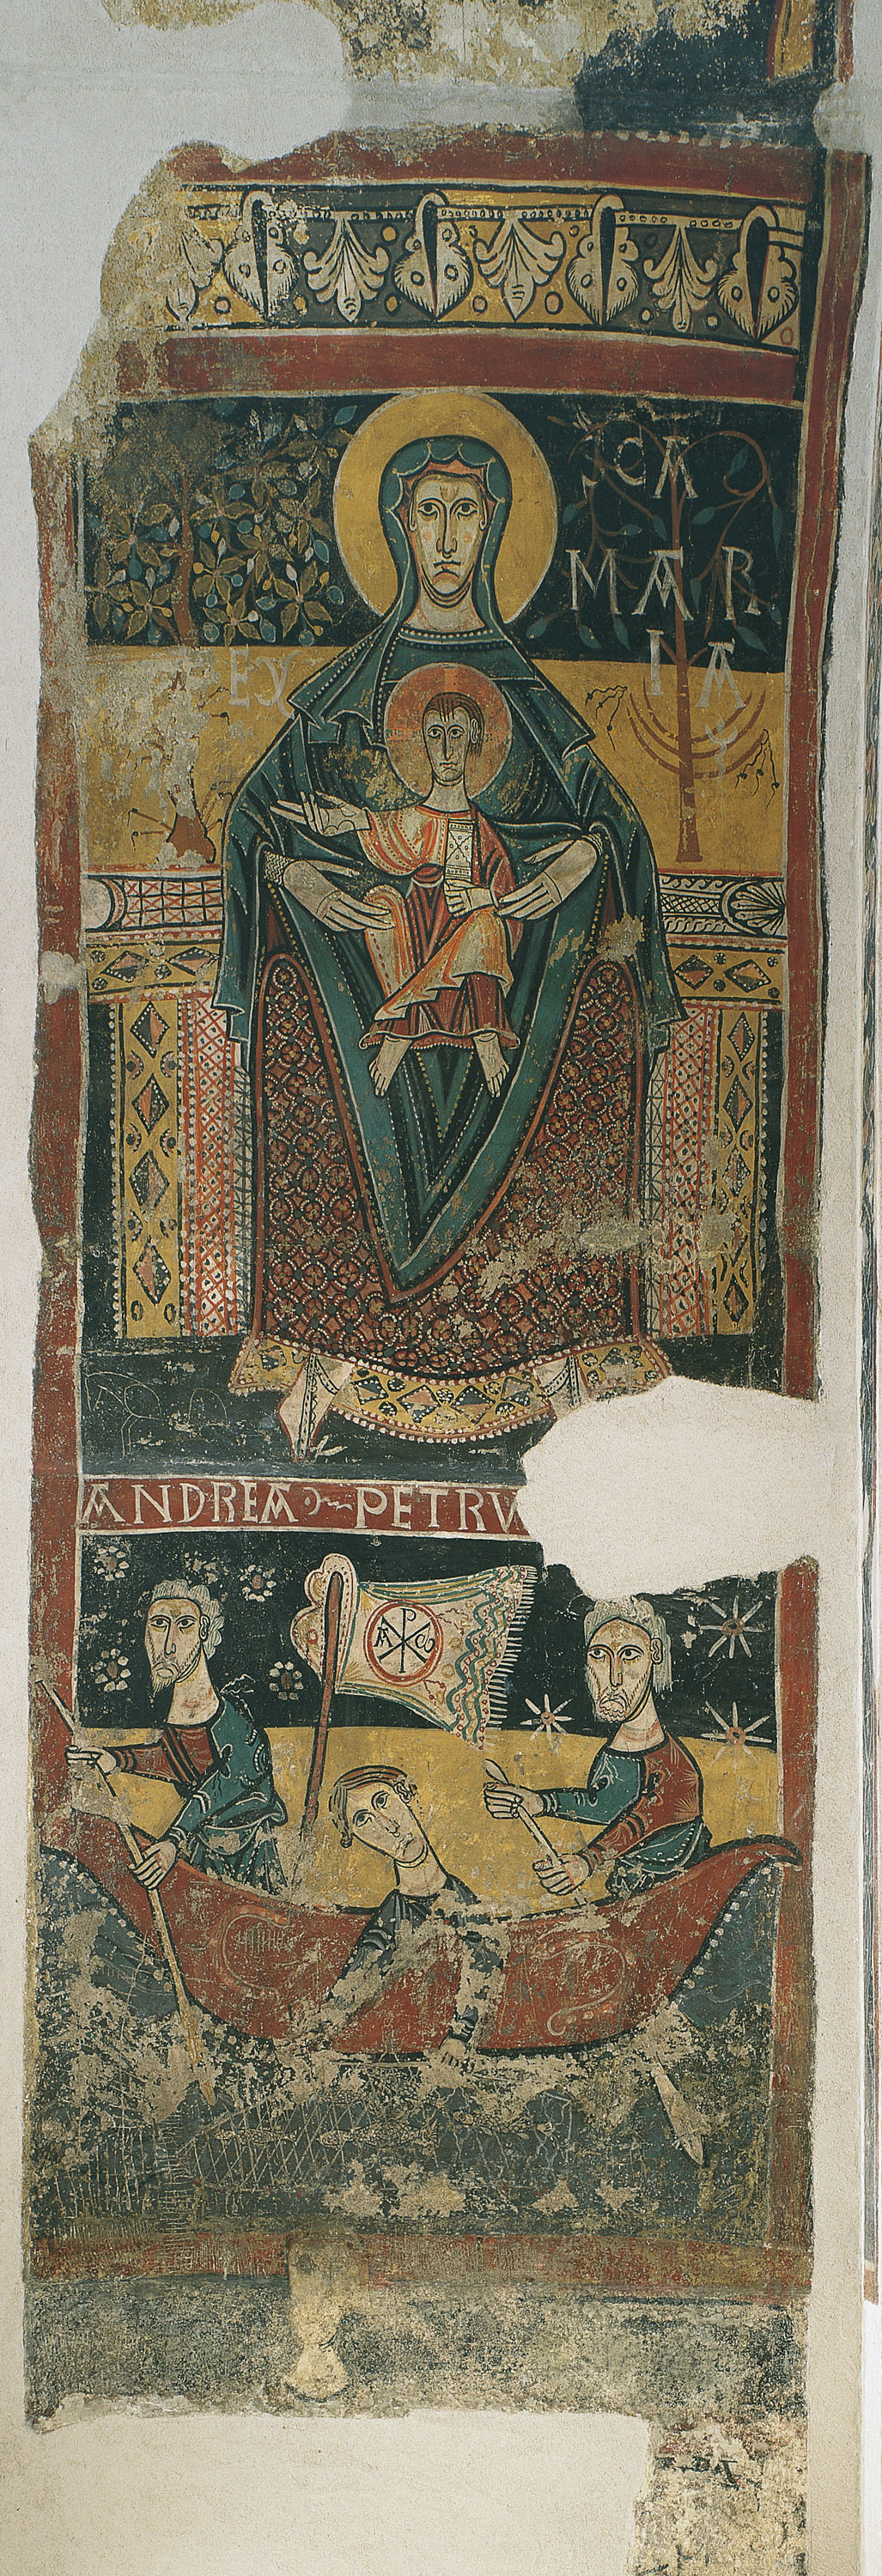 SCA
MAR
IA
ANDREA PETRV
A ω